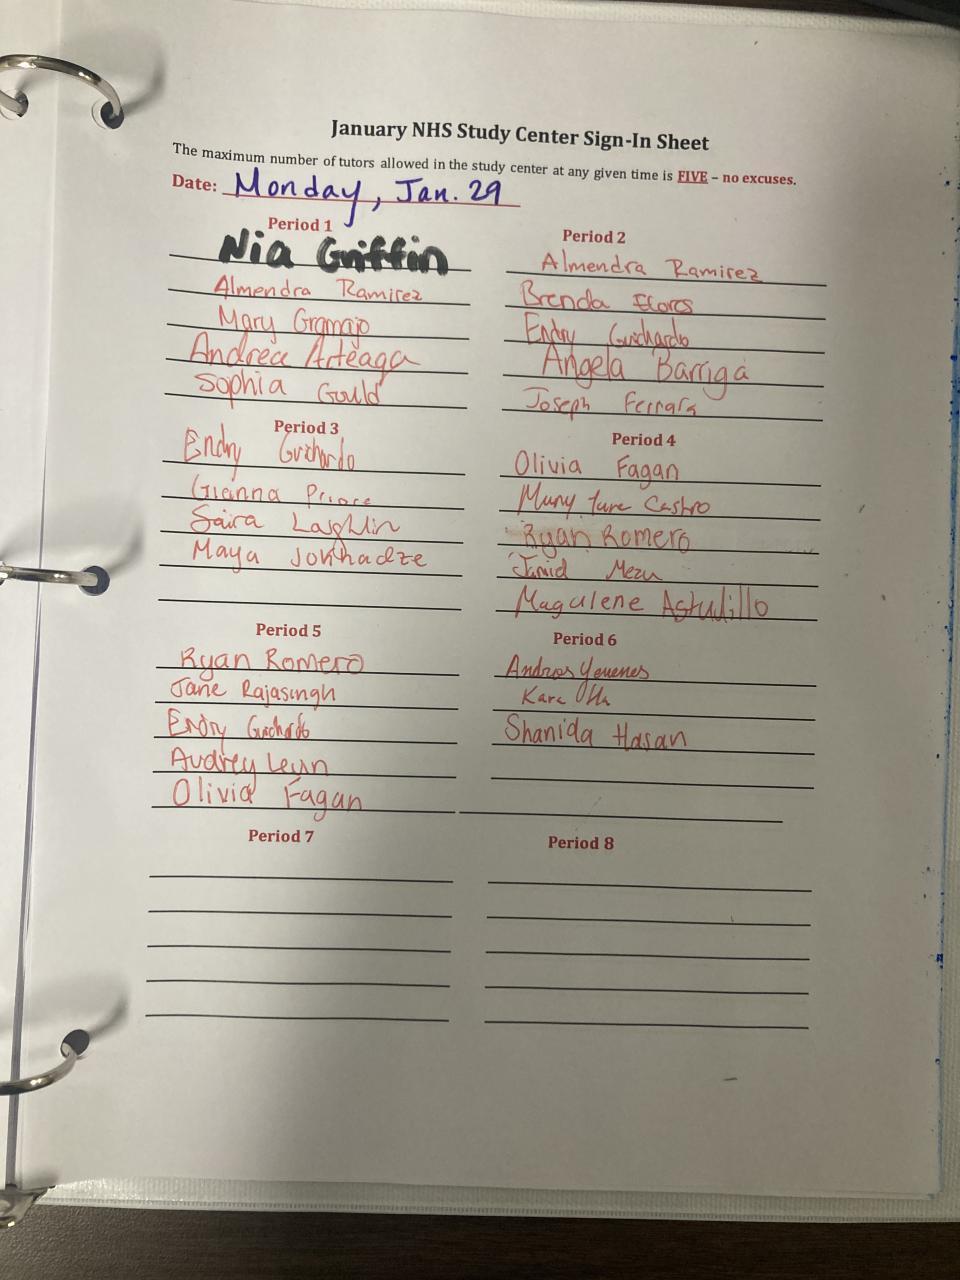 January NHS Study Center Sign-In Sheet
The maximum number of tutors allowed in the study center at any given time is FIVE – no excuses.
Date: Monday, Jan. 29
Period 1
Nia Griffin
Almendra Ramirez
Mary Gramajo
Andrea Arteaga
Sophia Gould
Period 2
Almendra Ramirez
Brenda Flores
Endry Guichardo
Angela Barriga
Joseph Ferrara
Period 3
Endry Guichardo
Gianna Priore
Saira Laghlin
Maya Jonhadze
Period 4
Olivia Fagan
Castro
Ryan Romero
Magalene Astudillo
Period 5
Ryan Romero
Jane Rajasingh
Endry Guichardo
Audrey
Olivia Fagan
Period 6
Kara
Shanida Hasan
Period 7
Period 8